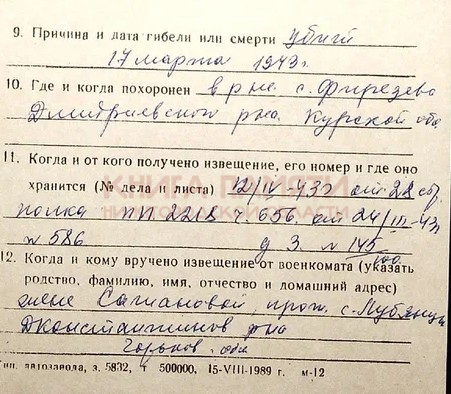 9. Причина и дата гибели или смерти убит
17 марта 1943 г.
10. Где и когда похоронен в р-не с. Фирезево
Дмитриевского р-на Курской обл.
11. Когда и от кого получено извещение, его номер и где оно
хранится (№ дела и листа) 12/IV-43г от 28
полка ПП 2218 ч. 656 от 24/III-43г
№ 586 д 3 л 145
12. Когда и кому вручено извещение от военкомата (указать
родство, фамилию, имя, отчество и домашний адрес)
жене прож. с.
Дконстантинов р-на
Горьков. обл.
Тип. автозавода, з. 5832, т 500000, 15-VIII-1989 г. м-12
КНИГА ПАМЯТИ
НИЖЕГОРОДСКОЙ ОБЛАСТИ